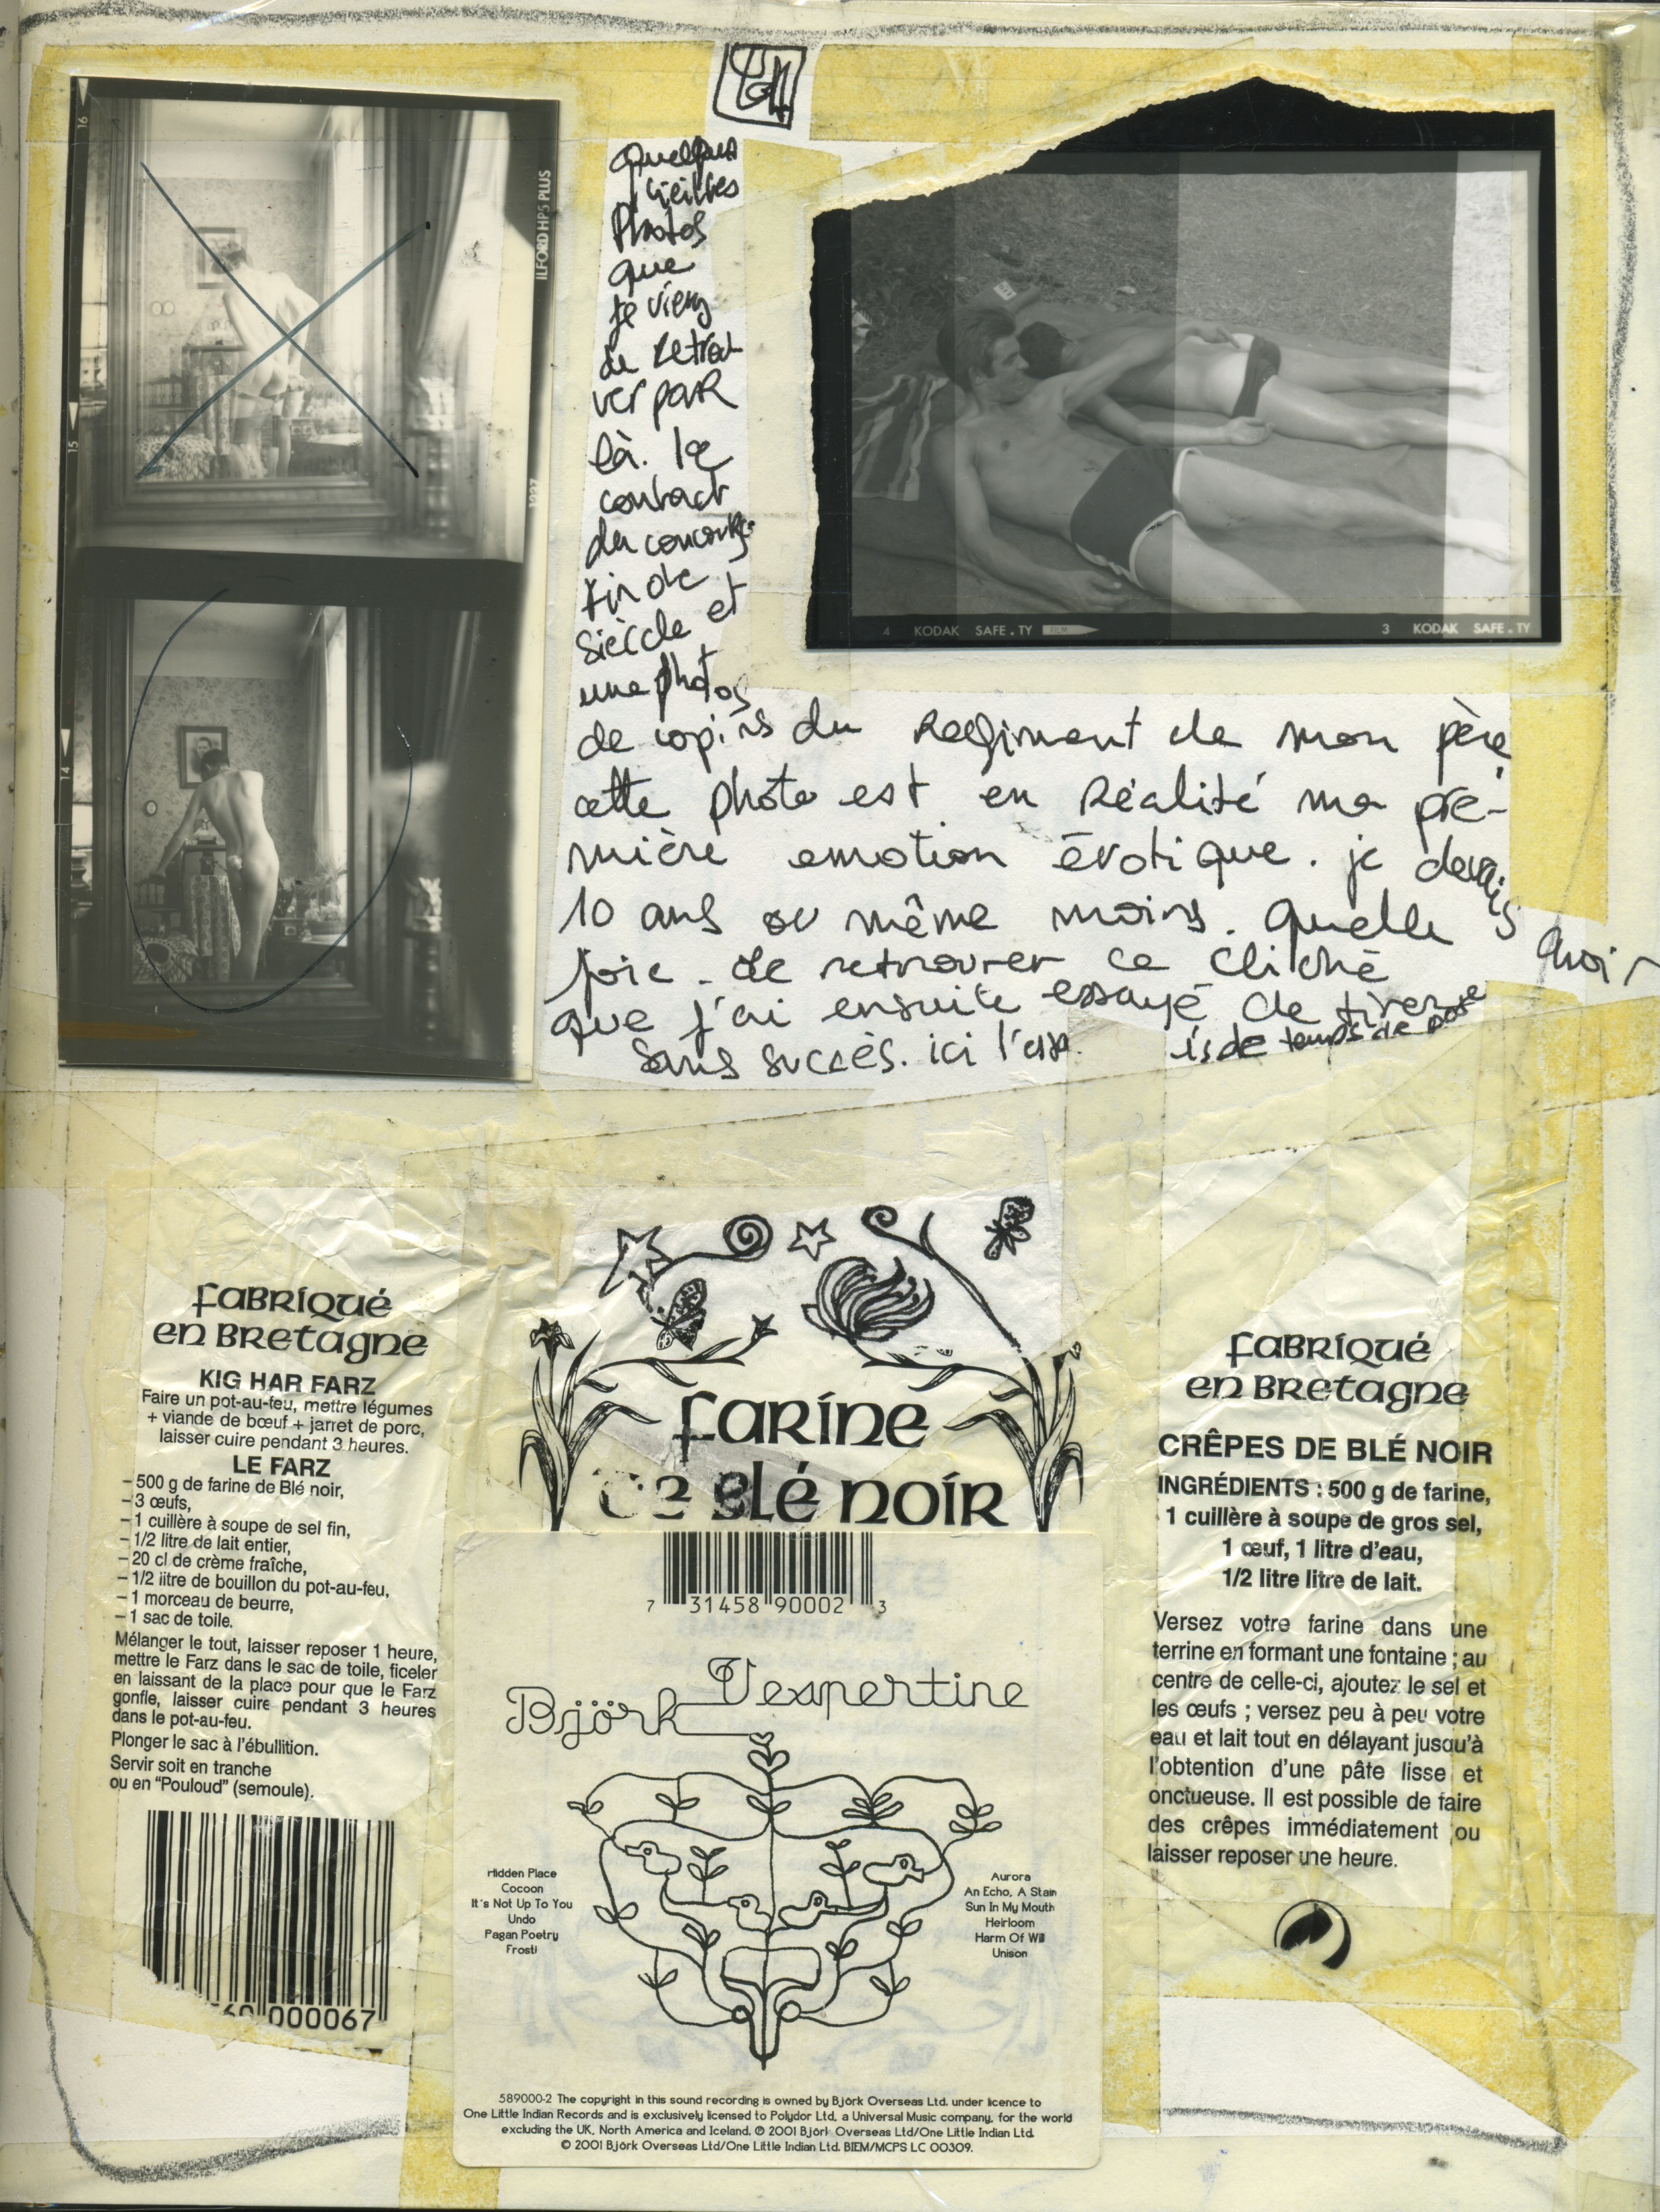 16
15
14
ILFORD HP5 PLUS
quelques
vieilles
photos
que
je viens
de retrou
ver par
là. le
contact
du concours
fin de
siècle et
une photos
de copins du Regiment de mon père
cette photo est en Réalité ma pre-
mière emotion érotique. je devais
10 ans ou même moins. quelle
joie de retrouver ce cliché
que j'ai ensuite essayé de tirer
sans succès. ici l'
de temps de pose
4 KODAK SAFE.TY FILM
3 KODAK SAFE.TY
fabriqué
en Bretagne
KIG HAR FARZ
Faire un pot-au-feu, mettre légumes
+ viande de bœuf + jarret de porc,
laisser cuire pendant 3 heures.
LE FARZ
– 500 g de farine de Blé noir,
– 3 œufs,
– 1 cuillère à soupe de sel fin,
– 1/2 litre de lait entier,
– 20 cl de crème fraîche,
– 1/2 litre de bouillon du pot-au-feu,
– 1 morceau de beurre,
– 1 sac de toile.
Mélanger le tout, laisser reposer 1 heure,
mettre le Farz dans le sac de toile, ficeler
en laissant de la place pour que le Farz
gonfle, laisser cuire pendant 3 heures
dans le pot-au-feu.
Plonger le sac à l'ébullition.
Servir soit en tranche
ou en "Pouloud" (semoule).
60 000067
farine
de Blé noir
7 31458 90002 3
Björk Vespertine
Hidden Place
Cocoon
It's Not Up To You
Undo
Pagan Poetry
Frosti
Aurora
An Echo, A Stain
Sun In My Mouth
Heirloom
Harm Of Will
Unison
589000-2 The copyright in this sound recording is owned by Björk Overseas Ltd. under licence to
One Little Indian Records and is exclusively licensed to Polydor Ltd, a Universal Music company, for the world
excluding the UK, North America and Iceland. ℗ 2001 Björk Overseas Ltd/One Little Indian Ltd.
© 2001 Björk Overseas Ltd/One Little Indian Ltd. BIEM/MCPS LC 00309.
fabriqué
en Bretagne
CRÊPES DE BLÉ NOIR
INGRÉDIENTS : 500 g de farine,
1 cuillère à soupe de gros sel,
1 œuf, 1 litre d'eau,
1/2 litre litre de lait.
Versez votre farine dans une
terrine en formant une fontaine ; au
centre de celle-ci, ajoutez le sel et
les œufs ; versez peu à peu votre
eau et lait tout en délayant jusqu'à
l'obtention d'une pâte lisse et
onctueuse. Il est possible de faire
des crêpes immédiatement ou
laisser reposer une heure.